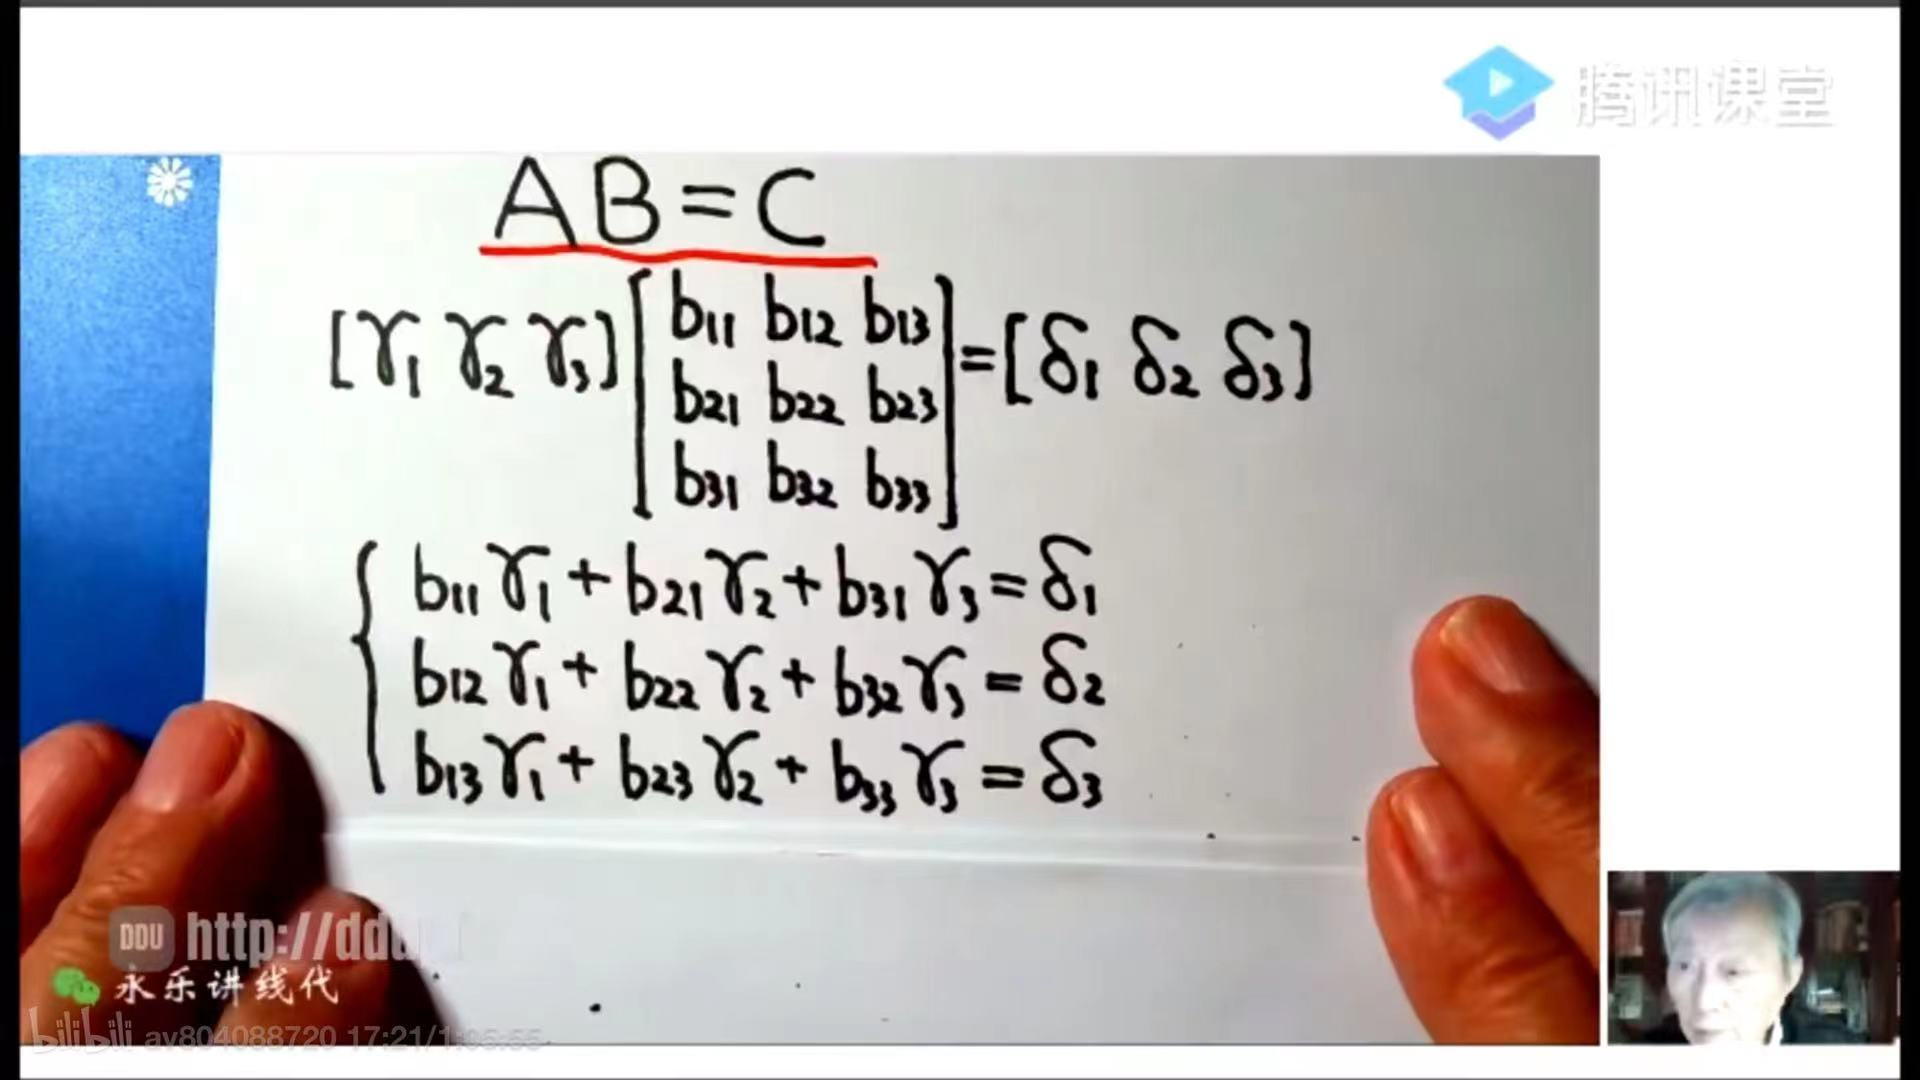 腾讯课堂
AB=C
[γ1 γ2 γ3][b11 b12 b13
b21 b22 b23
b31 b32 b33]=[δ1 δ2 δ3]
b11γ1+b21γ2+b31γ3=δ1
b12γ1+b22γ2+b32γ3=δ2
b13γ1+b23γ2+b33γ3=δ3
DDU http://ddu
永乐讲线代
bilibili av804088720 17:21/1:05:55